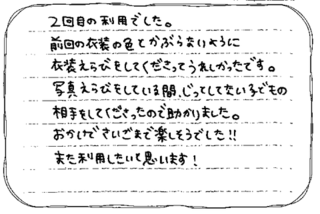 2回目の利用でした。
前回の衣装の色とかぶらないように
衣装えらびをしてくださってうれしかったです。
写真えらびをしている間、じってしてない子どもの
相手をしてくださったので助かりました。
おかげでさいごまで楽しそうでした!!
また利用したいて思います!